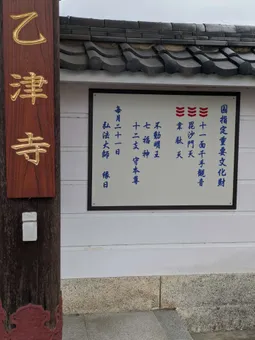 乙津寺
国指定重要文化財
十一面千手観音
毘沙門天
韋駄天
不動明王
七福神
十二支 守本尊
毎月二十一日
弘法大師 縁日